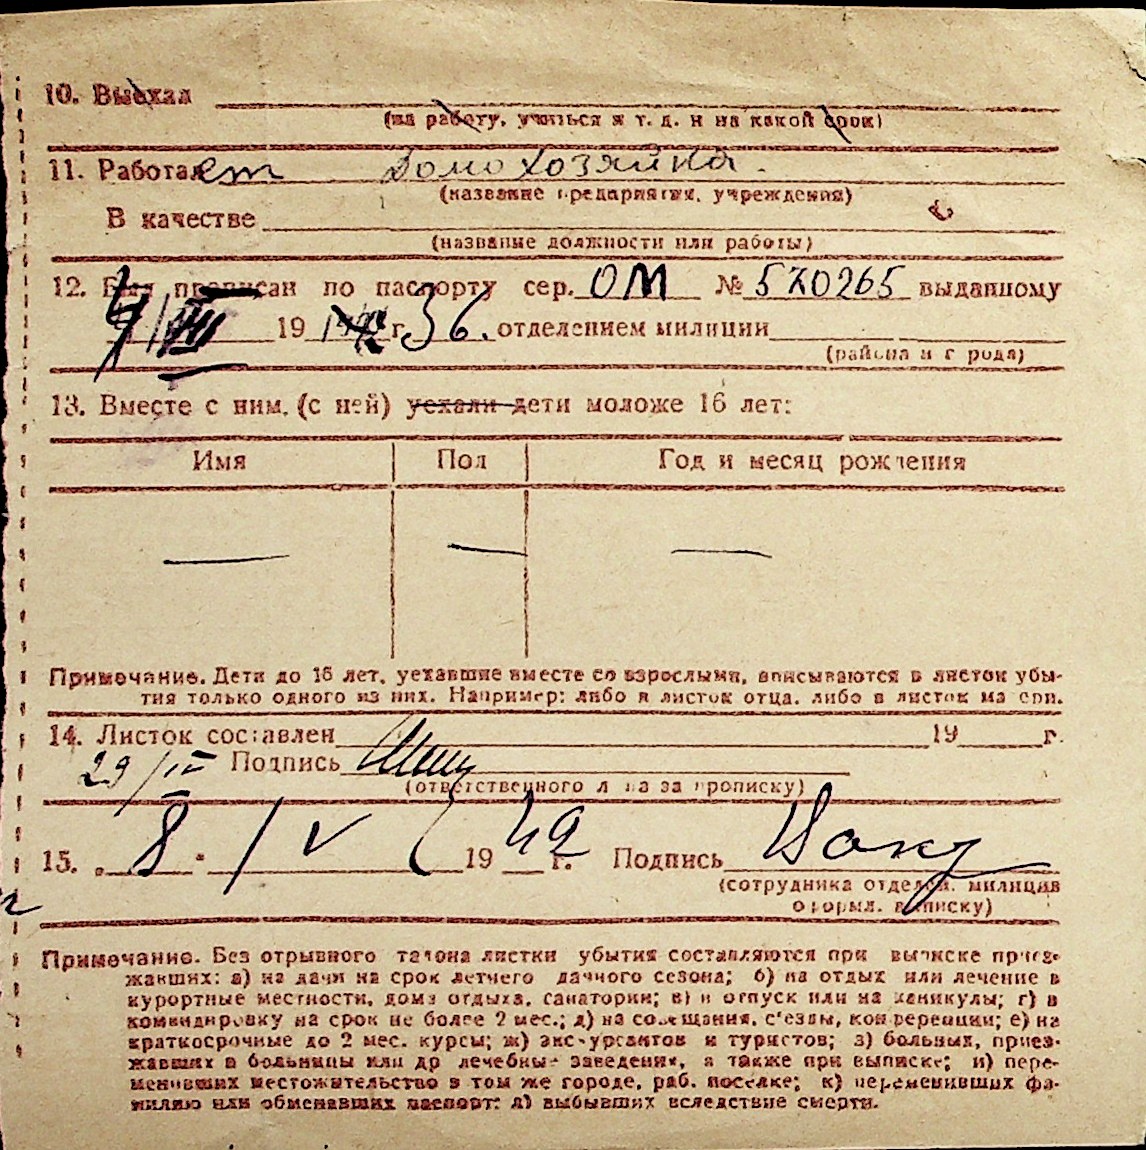 10. Выехал
(на работу, учиться и т. д. и на какой срок)
11. Работает Домохозяйка.
(название предприятия, учреждения)
В качестве
(название должности или работы)
12. Был прописан по паспорту сер. ОМ № 570265 выданному
19 г. 36. отделением милиции
(района и города)
13. Вместе с ним, (с ней) уехали дети моложе 16 лет:
Имя Пол Год и месяц рождения
— — —
Примечание. Дети до 16 лет, уехавшие вместе со взрослыми, вписываются в листок убы-
тия только одного из них. Например: либо в листок отца, либо в листок матери.
14. Листок составлен 19 г.
29/IV Подпись
(ответственного лица за прописку)
15. „8" / V 1949 г. Подпись
(сотрудника отделен. милиции
оформл. выписку)
Примечание. Без отрывного талона листки убытия составляются при выписке приез-
жавших: а) на дачи на срок летнего дачного сезона; б) на отдых или лечение в
курортные местности, дома отдыха, санатории; в) в отпуск или на каникулы; г) в
командировку на срок не более 2 мес.; д) на совещания, с'езды, конференции; е) на
краткосрочные до 2 мес. курсы; ж) экскурсантов и туристов; з) больных, приез-
жавших в больницы или др лечебные заведения, а также при выписке; и) пере-
менивших местожительство в том же городе, раб. поселке; к) переменивших фа-
милию или обменявших паспорт; л) выбывших вследствие смерти.